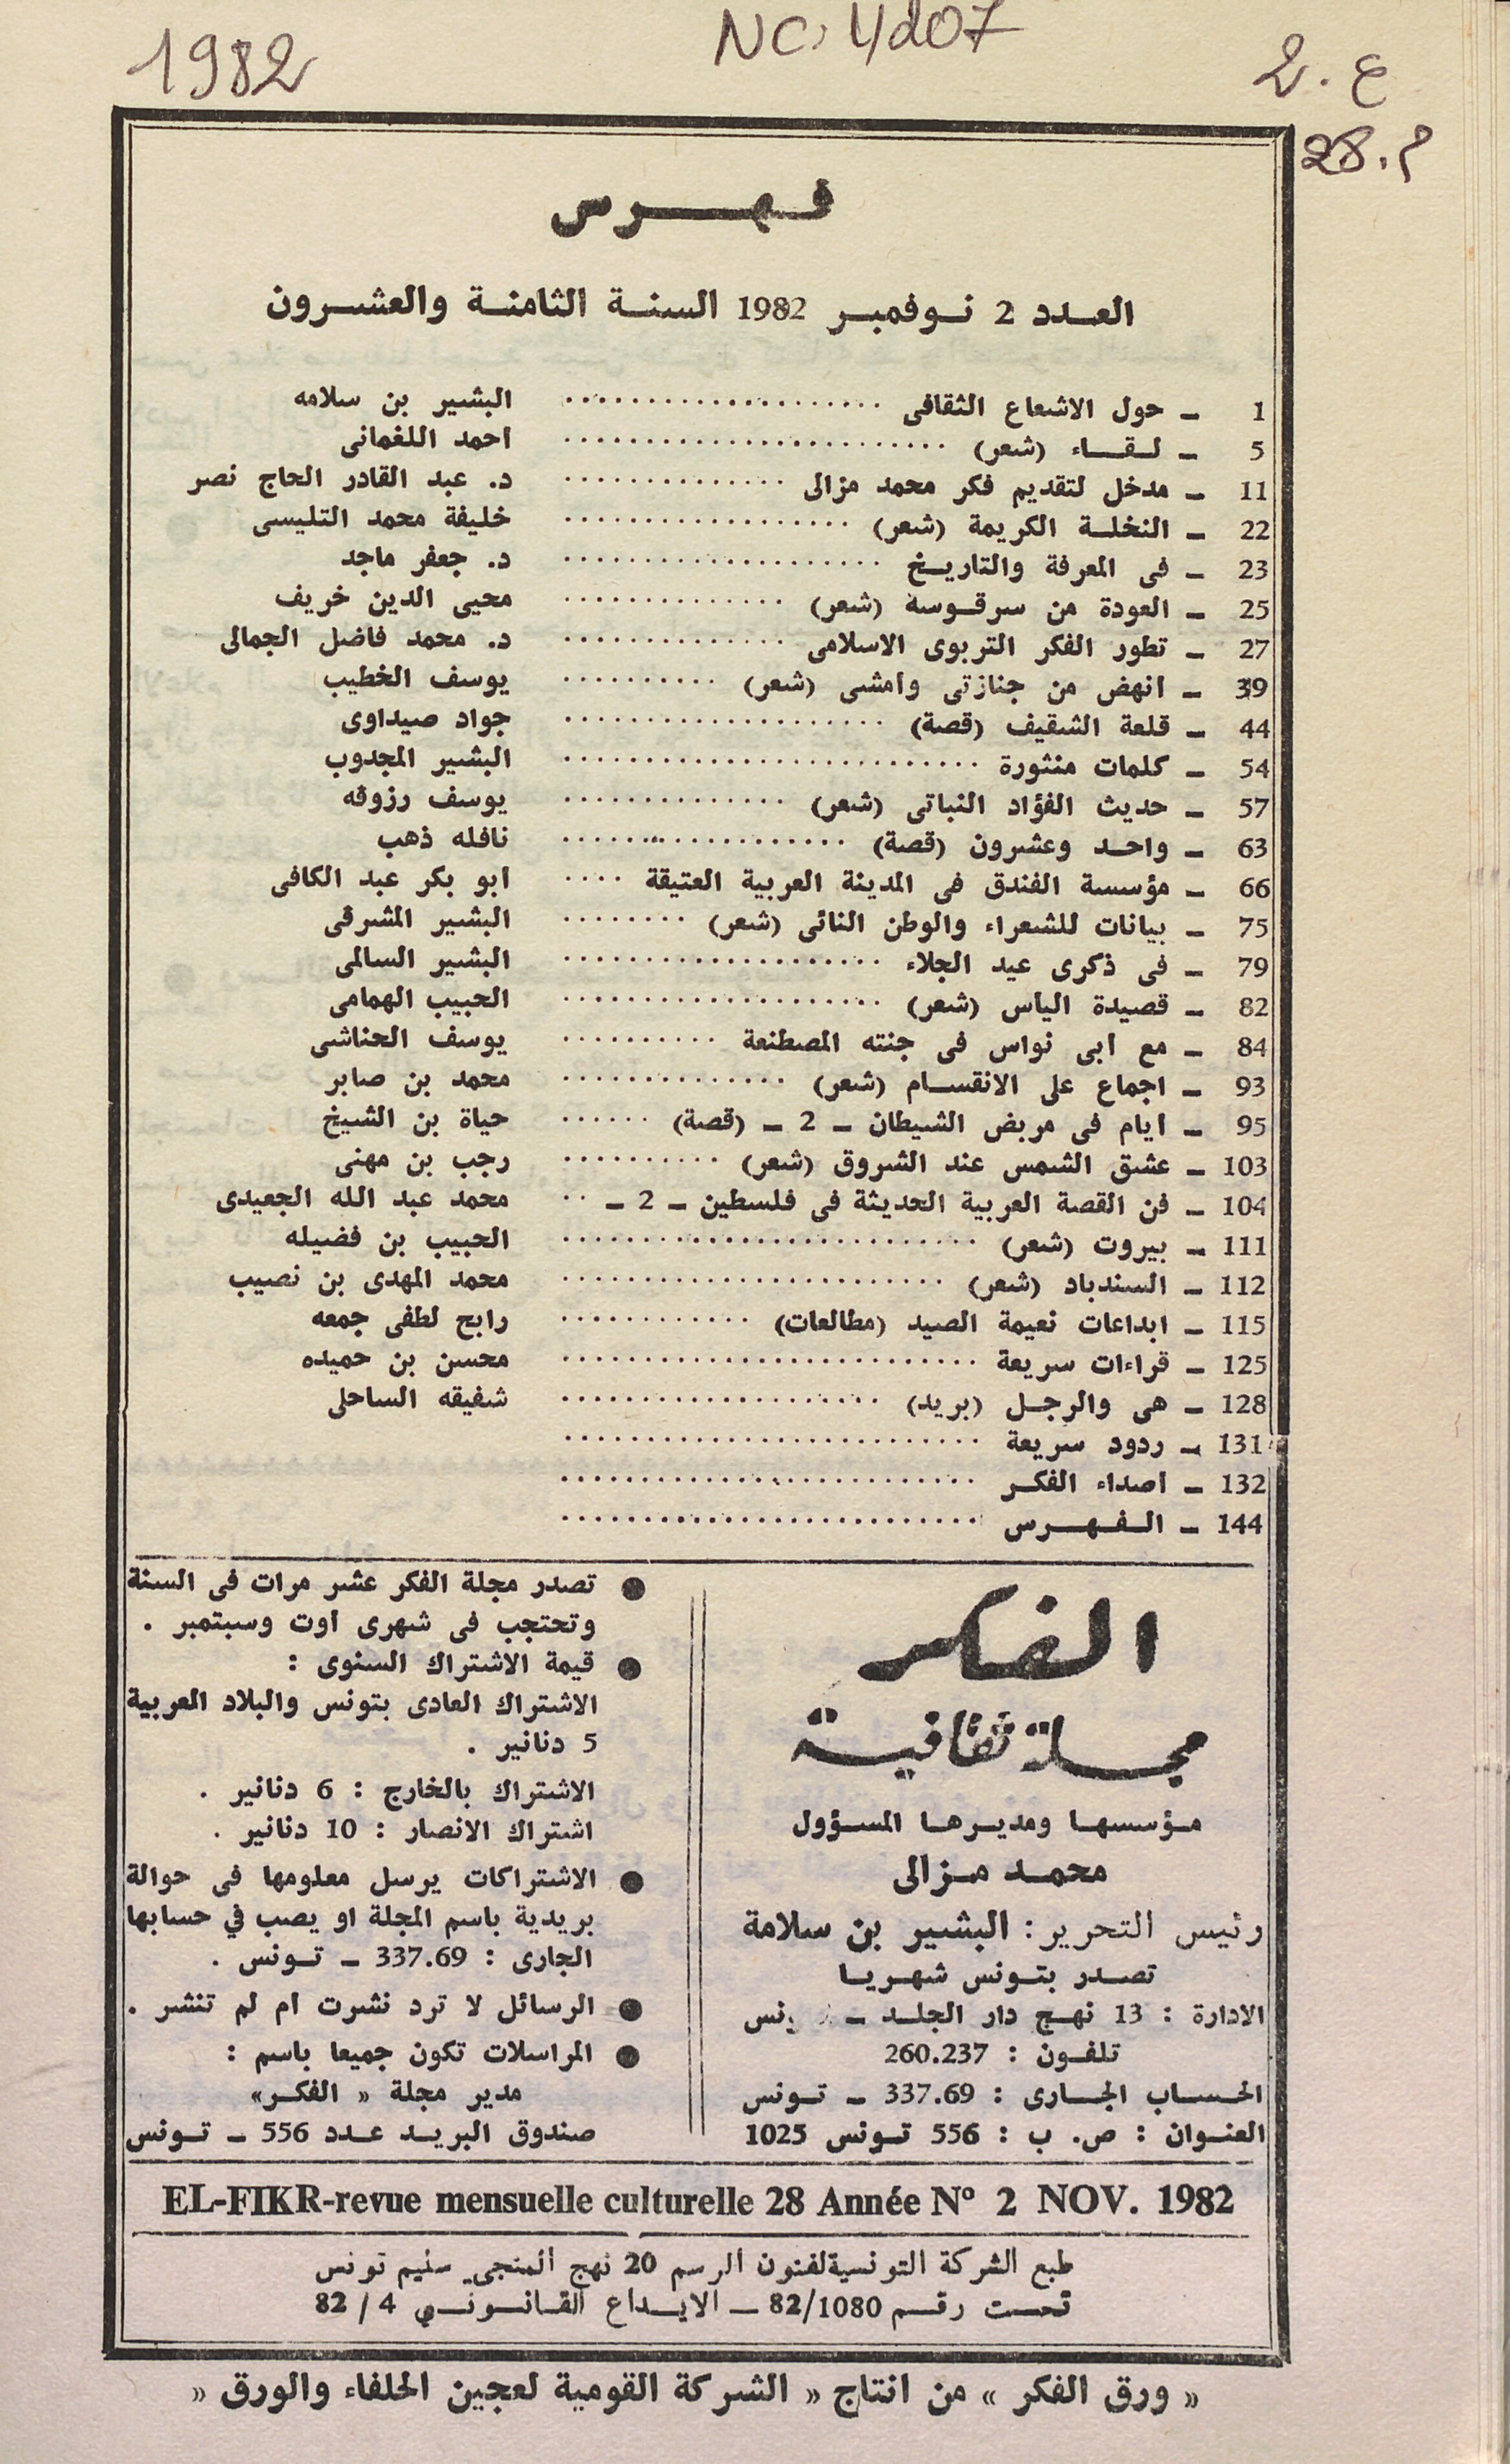 1982
NC: 4207
ع. 2
م. 28
فهرس
العدد 2 نوفمبر 1982 السنة الثامنة والعشرون
1 ــ حول الاشعاع الثقافى .................... البشير بن سلامه
5 ــ لقاء (شعر) ........................ احمد اللغمانى
11 ــ مدخل لتقديم فكر محمد مزالى .............. د. عبد القادر الحاج نصر
22 ــ النخلة الكريمة (شعر) .................. خليفة محمد التليسى
23 ــ فى المعرفة والتاريخ .................... د. جعفر ماجد
25 ــ العودة من سرقوسة (شعر) .............. محيى الدين خريف
27 ــ تطور الفكر التربوى الاسلامى .............. د. محمد فاضل الجمالى
39 ــ انهض من جنازتى وامشى (شعر) .......... يوسف الخطيب
44 ــ قلعة الشقيف (قصة) .................... جواد صيداوى
54 ــ كلمات منثورة .......................... البشير المجدوب
57 ــ حديث الفؤاد النباتى (شعر) .............. يوسف رزوقه
63 ــ واحد وعشرون (قصة) .................. نافله ذهب
66 ــ مؤسسة الفندق فى المدينة العربية العتيقة .... ابو بكر عبد الكافى
75 ــ بيانات للشعراء والوطن النائى (شعر) ........ البشير المشرقى
79 ــ فى ذكرى عيد الجلاء .................... البشير السالمى
82 ــ قصيدة الياس (شعر) .................... الحبيب الهمامى
84 ــ مع ابى نواس فى جنته المصطنعة .......... يوسف الحناشى
93 ــ اجماع على الانقسام (شعر) .............. محمد بن صابر
95 ــ ايام فى مربض الشيطان ــ 2 ــ (قصة) ...... حياة بن الشيخ
103 ــ عشق الشمس عند الشروق (شعر) .......... رجب بن مهنى
104 ــ فن القصة العربية الحديثة فى فلسطين ــ 2 ــ .. محمد عبد الله الجعيدى
111 ــ بيروت (شعر) .......................... الحبيب بن فضيله
112 ــ السندباد (شعر) ........................ محمد المهدى بن نصيب
115 ــ ابداعات نعيمة الصيد (مطالعات) ............ رابح لطفى جمعه
125 ــ قراءات سريعة .......................... محسن بن حميده
128 ــ هى والرجل (بريد) .................... شفيقه الساحلى
131 ــ ردود سريعة ..........................
132 ــ اصداء الفكر ..........................
144 ــ الفهرس ..........................
الفكر
مجلة ثقافية
مؤسسها ومديرها المسؤول
محمد مزالى
رئيس التحرير : البشير بن سلامة
تصدر بتونس شهريا
الادارة : 13 نهج دار الجلد ــ تونس
تلفون : 260.237
الحساب الجارى : 337.69 ــ تونس
العنوان : ص. ب : 556 تونس 1025
● تصدر مجلة الفكر عشر مرات فى السنة
وتحتجب فى شهرى اوت وسبتمبر .
● قيمة الاشتراك السنوى :
الاشتراك العادى بتونس والبلاد العربية
5 دنانير .
الاشتراك بالخارج : 6 دنانير .
اشتراك الانصار : 10 دنانير .
● الاشتراكات يرسل معلومها فى حوالة
بريدية باسم المجلة او يصب في حسابها
الجارى : 337.69 ــ تونس .
● الرسائل لا ترد نشرت ام لم تنشر .
● المراسلات تكون جميعا باسم :
مدير مجلة « الفكر»
صندوق البريد عدد 556 ــ تونس
EL-FIKR-revue mensuelle culturelle 28 Année Nº 2 NOV. 1982
طبع الشركة التونسية لفنون الرسم 20 نهج المنجي سليم تونس
تحت رقم 82/1080 ــ الايداع القانوني 4 / 82
« ورق الفكر » من انتاج « الشركة القومية لعجين الحلفاء والورق »